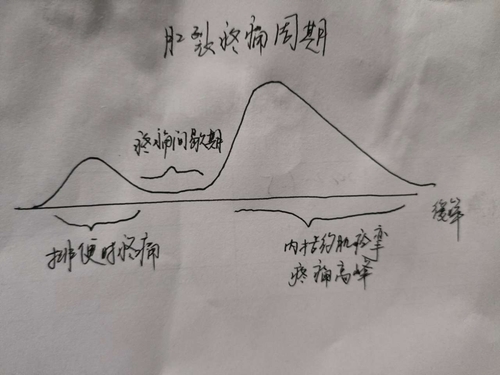 肛裂疼痛周期
疼痛间歇期
排便时疼痛
内括约肌痉挛
疼痛高峰
缓解